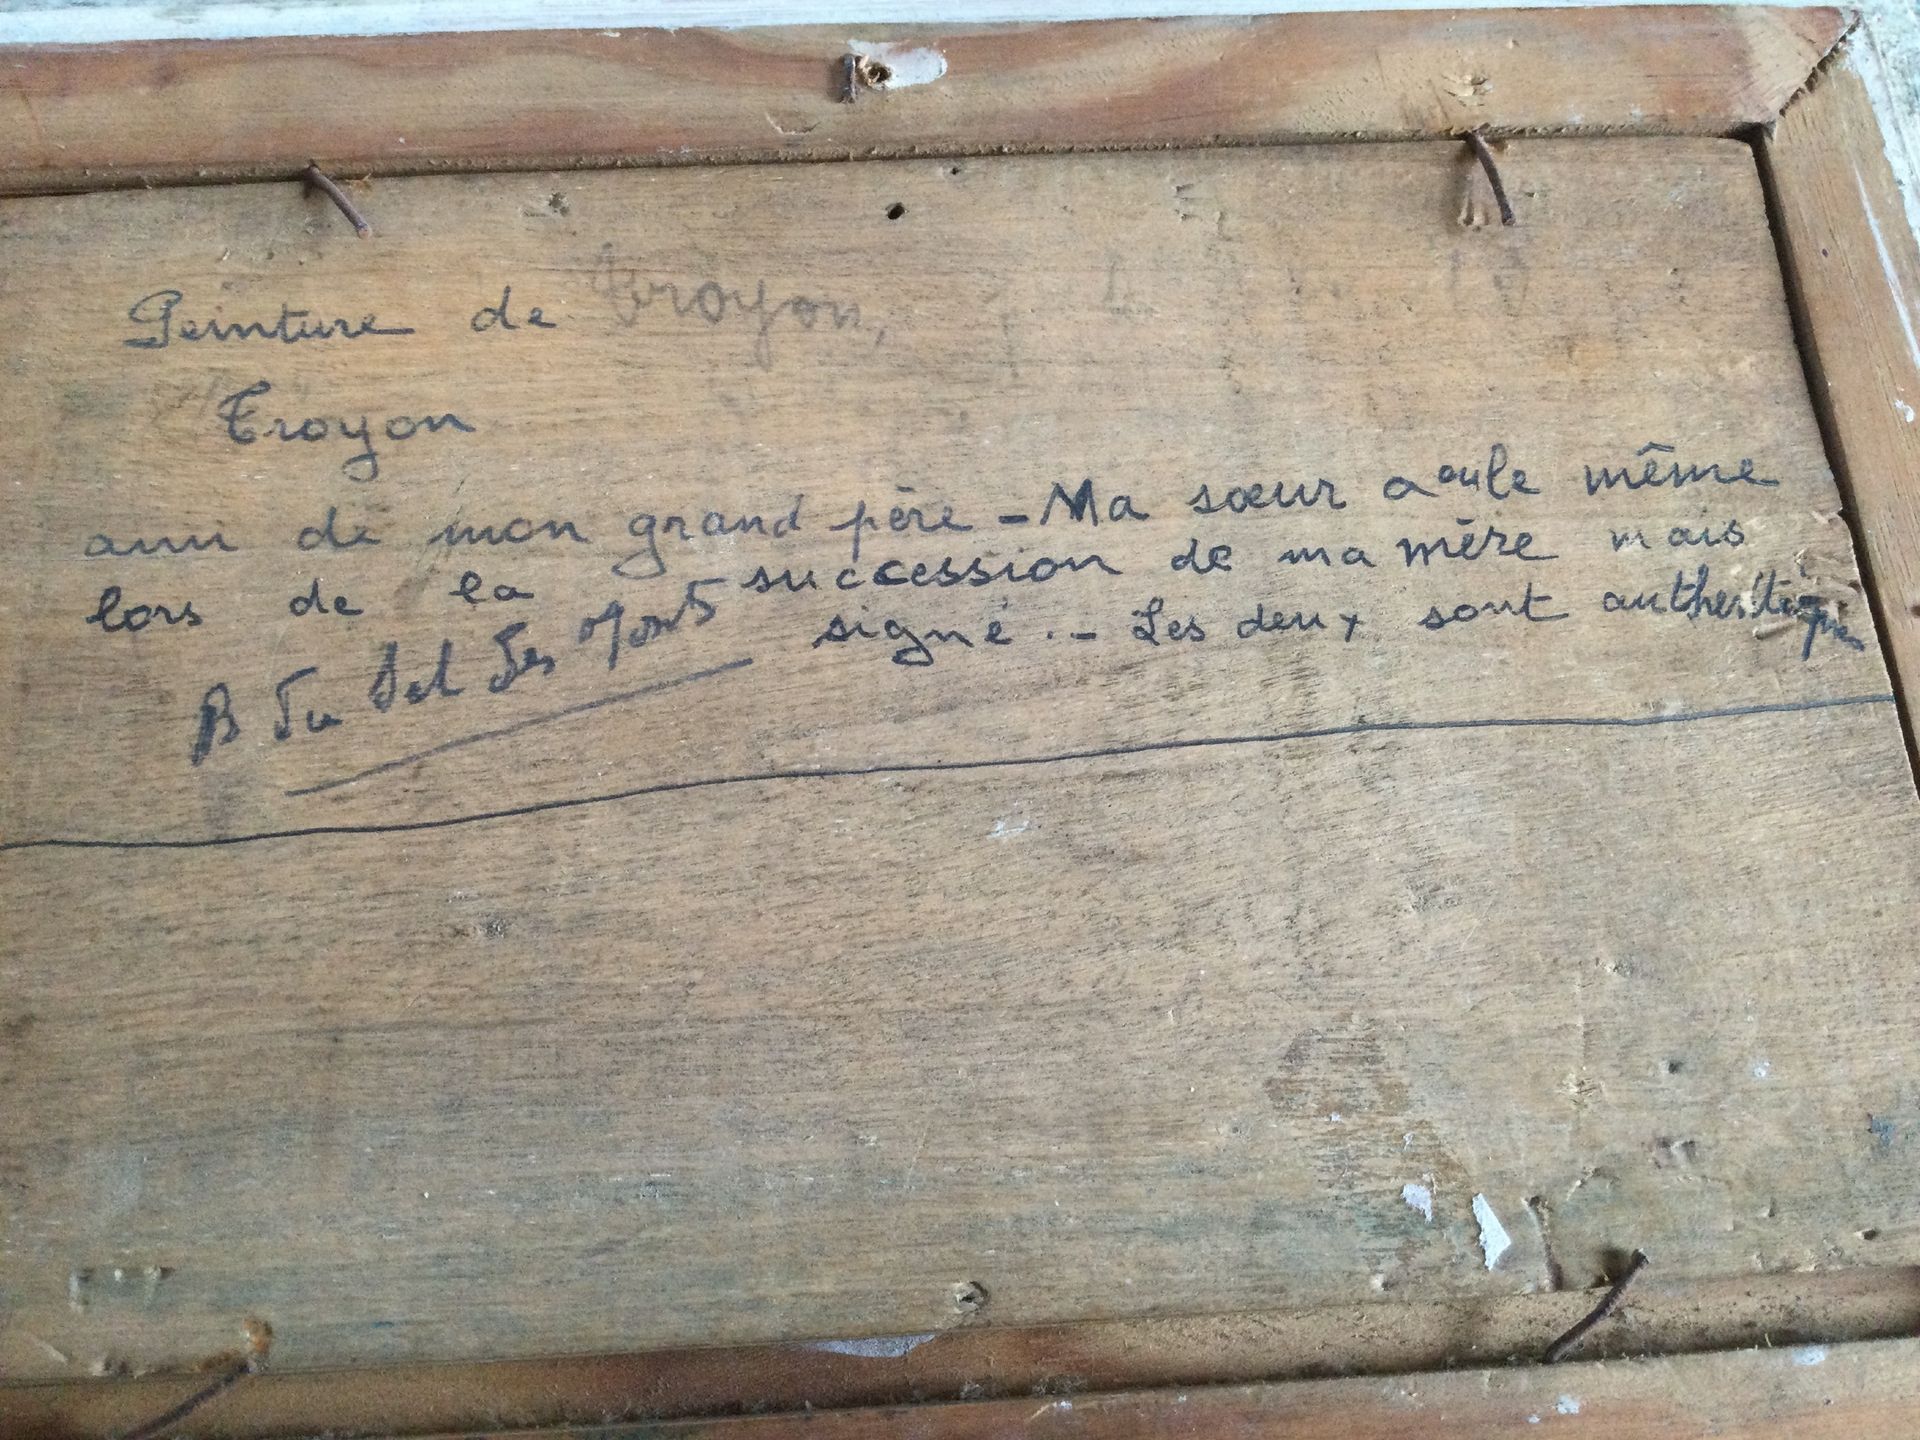 Peinture de Troyon,
Troyon
ami de mon grand père - Ma sœur a eu le même
lors de la succession de ma mère mais
signé. - Les deux sont authentiques
B du des Monts